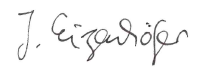 J. Eizenhöfer